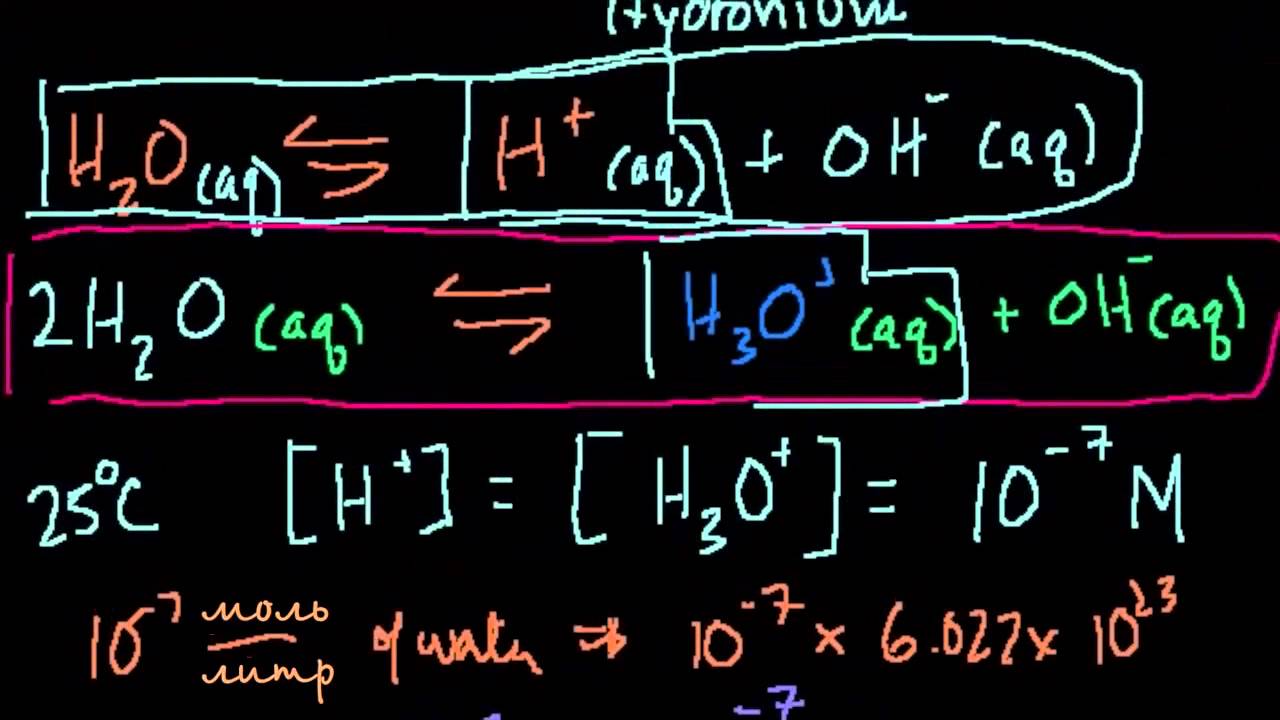 Hydronium
H₂O(aq) ⇌ H⁺(aq) + OH⁻(aq)
2H₂O(aq) ⇌ H₃O⁺(aq) + OH⁻(aq)
25°C [H⁺] = [H₃O⁺] = 10⁻⁷ M
10⁻⁷ моль/литр of water ⇒ 10⁻⁷ × 6.022 × 10²³
-7